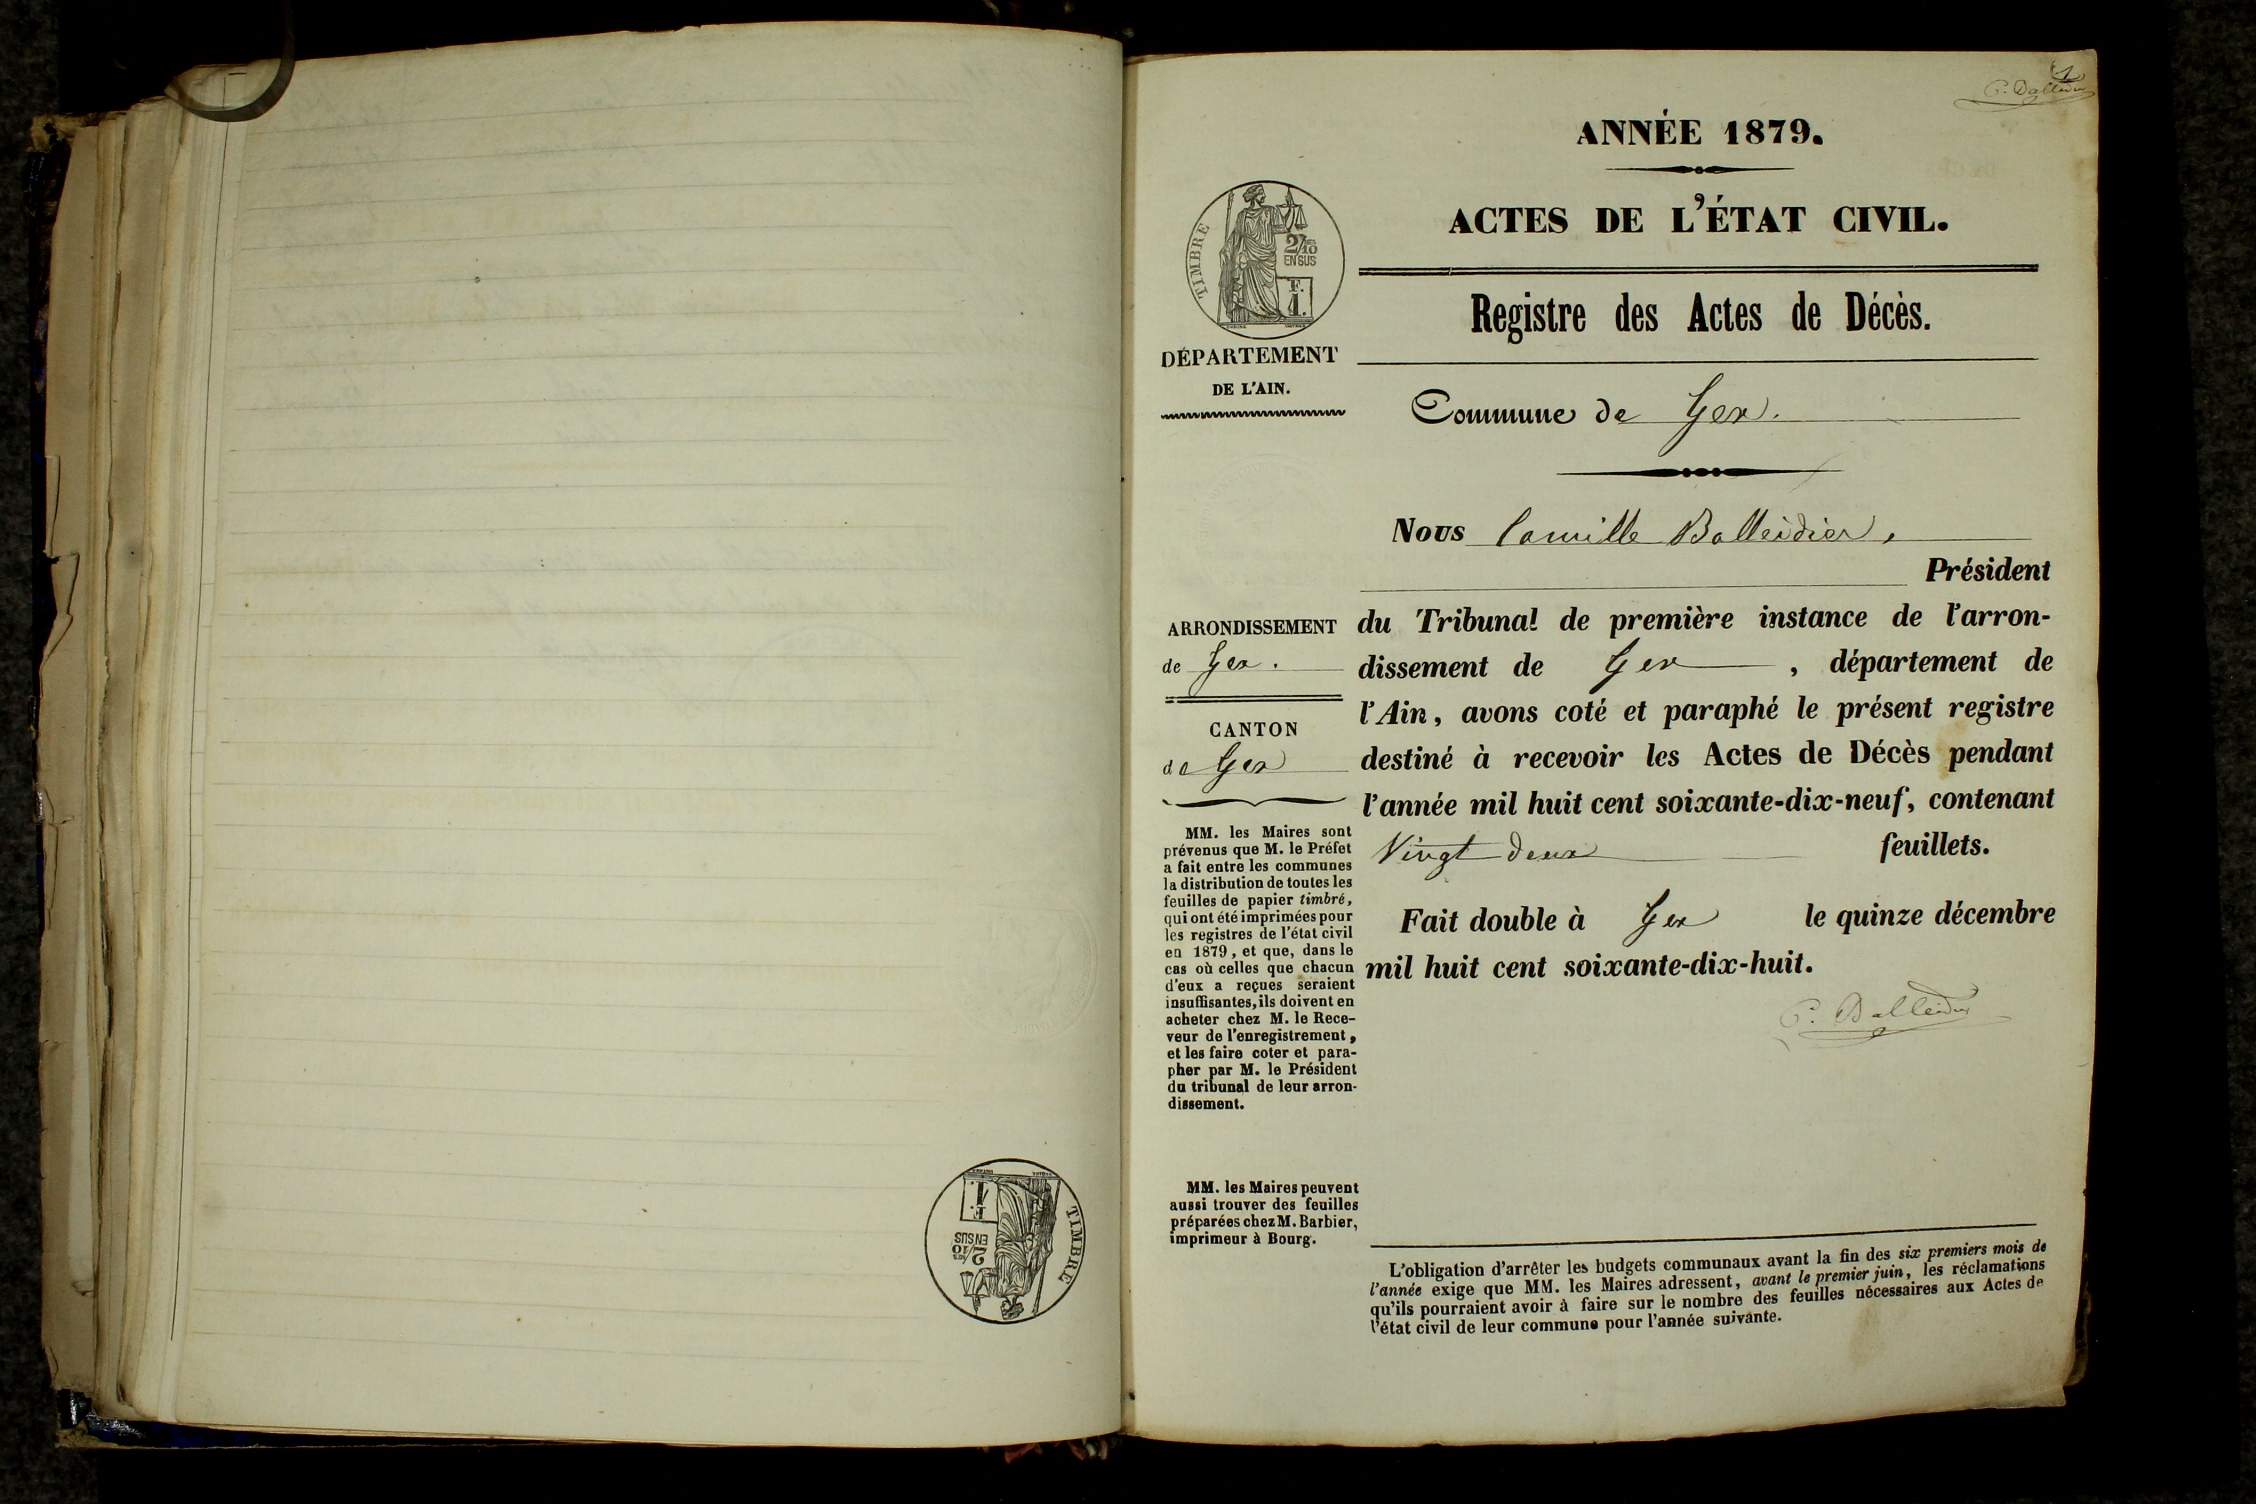 1
C. Balleidier
ANNÉE 1879.
ACTES DE L'ÉTAT CIVIL.
Registre des Actes de Décès.
TIMBRE
2/10
EN SUS
F.
1.
DÉPARTEMENT
DE L'AIN.
Commune de Gex.
Nous Camille Balleidier,
Président
ARRONDISSEMENT
de Gex.
CANTON
de Gex
du Tribunal de première instance de l'arron-
dissement de Gex, département de
l'Ain, avons coté et paraphé le présent registre
destiné à recevoir les Actes de Décès pendant
l'année mil huit cent soixante-dix-neuf, contenant
Vingt deux feuillets.
Fait double à Gex le quinze décembre
mil huit cent soixante-dix-huit.
C. Balleidier
MM. les Maires sont
prévenus que M. le Préfet
a fait entre les communes
la distribution de toutes les
feuilles de papier timbré,
qui ont été imprimées pour
les registres de l'état civil
en 1879, et que, dans le
cas où celles que chacun
d'eux a reçues seraient
insuffisantes, ils doivent en
acheter chez M. le Rece-
veur de l'enregistrement,
et les faire coter et para-
pher par M. le Président
du tribunal de leur arron-
dissement.
MM. les Maires peuvent
aussi trouver des feuilles
préparées chez M. Barbier,
imprimeur à Bourg.
L'obligation d'arrêter les budgets communaux avant la fin des six premiers mois de
l'année exige que MM. les Maires adressent, avant le premier juin, les réclamations
qu'ils pourraient avoir à faire sur le nombre des feuilles nécessaires aux Actes de
l'état civil de leur commune pour l'année suivante.
TIMBRE
2/10
EN SUS
F.
1.